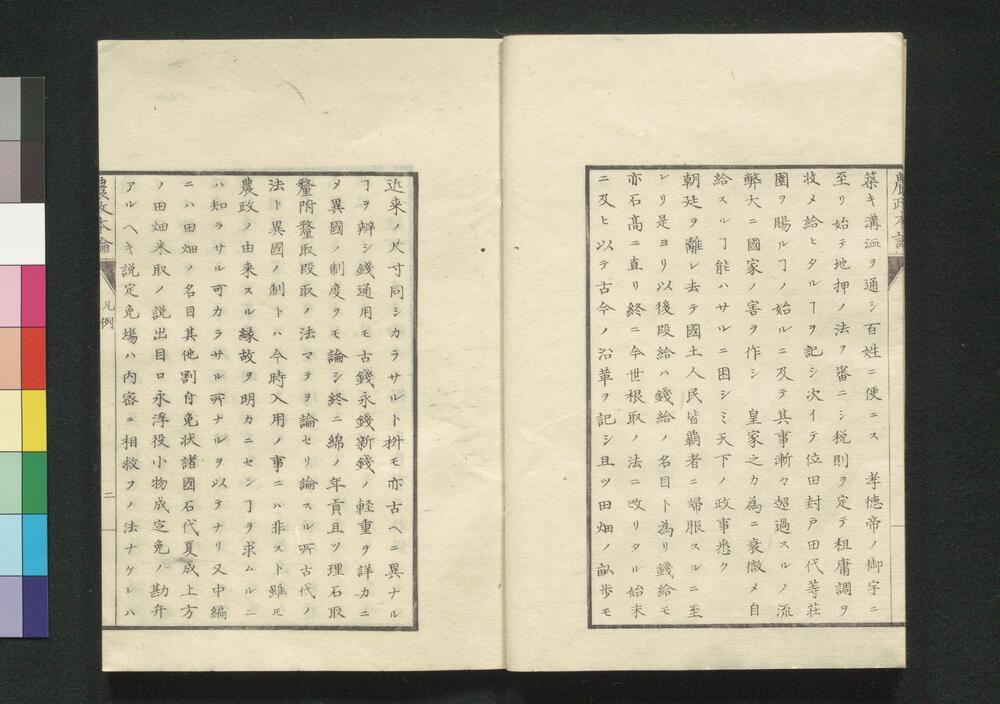 築キ溝洫ヲ通シ百姓ニ便ニス　孝徳帝ノ御宇ニ
至リ始テ地押ノ法ヲ審ニシ税則ヲ定テ租庸調ヲ
收メ給ヒタルヿヲ記シ次イテ位田封戸田代等荘
園ヲ賜ルヿノ始ルニ及テ其事漸々超過スルノ流
弊大ニ國家ノ害ヲ作シ　皇家之カ為ニ衰微メ自
給スルヿ能ハサルニ困シミ天下ノ政事悉ク
朝廷ヲ離レ去テ國土人民皆覇者ニ帰服スルニ至
レリ是ヨリ以後段給ハ錢給ノ名目ト為リ錢給モ
亦石高ニ直リ終ニ今世根取ノ法ニ改リタル始末
ニ及ヒ以テ古今ノ沿革ヲ記シ且ツ田畑ノ畝歩モ
近来ノ尺寸同シカラサルト枡モ亦古ヘニ異ナル
ヿヲ辨シ錢通用モ古錢永錢新錢ノ軽重ヲ詳カニ
メ異國ノ制度ヲモ論シ終ニ綿ノ年貢且ツ理石取
釐附釐取段取ノ法マテヲ論セリ論スル所古代ノ
法ト異國ノ制トハ今時入用ノ事ニハ非スト雖モ
農政ノ由来スル縁故ヲ明カニセンヿヲ求ムルニ
ハ知ラサル可カラサル所ナルヲ以テナリ又中編
ニハ田畑ノ名目其他割付免状諸國石代夏成上方
ノ田畑米取ノ説出目ロ永浮役小物成定免ノ勘弁
アルヘキ説定免場ハ内密ニ相救フノ法ナケレハ
農政本論
凡例
二